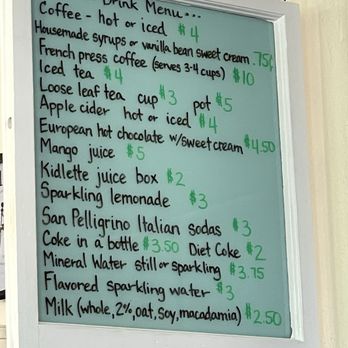 Drink Menu...
Coffee - hot or iced $4
Housemade syrups or vanilla bean sweet cream .75¢
French press coffee (serves 3-4 cups) $10
Iced tea $4
Loose leaf tea cup $3 pot $5
Apple cider hot or iced $4
European hot chocolate w/sweet cream $4.50
Mango juice $5
Kidlette juice box $2
Sparkling lemonade $3
San Pelligrino Italian sodas $3
Coke in a bottle $3.50 Diet Coke $2
Mineral Water still or sparkling $3.75
Flavored sparkling water $3
Milk (whole, 2%, oat, soy, macadamia) $2.50